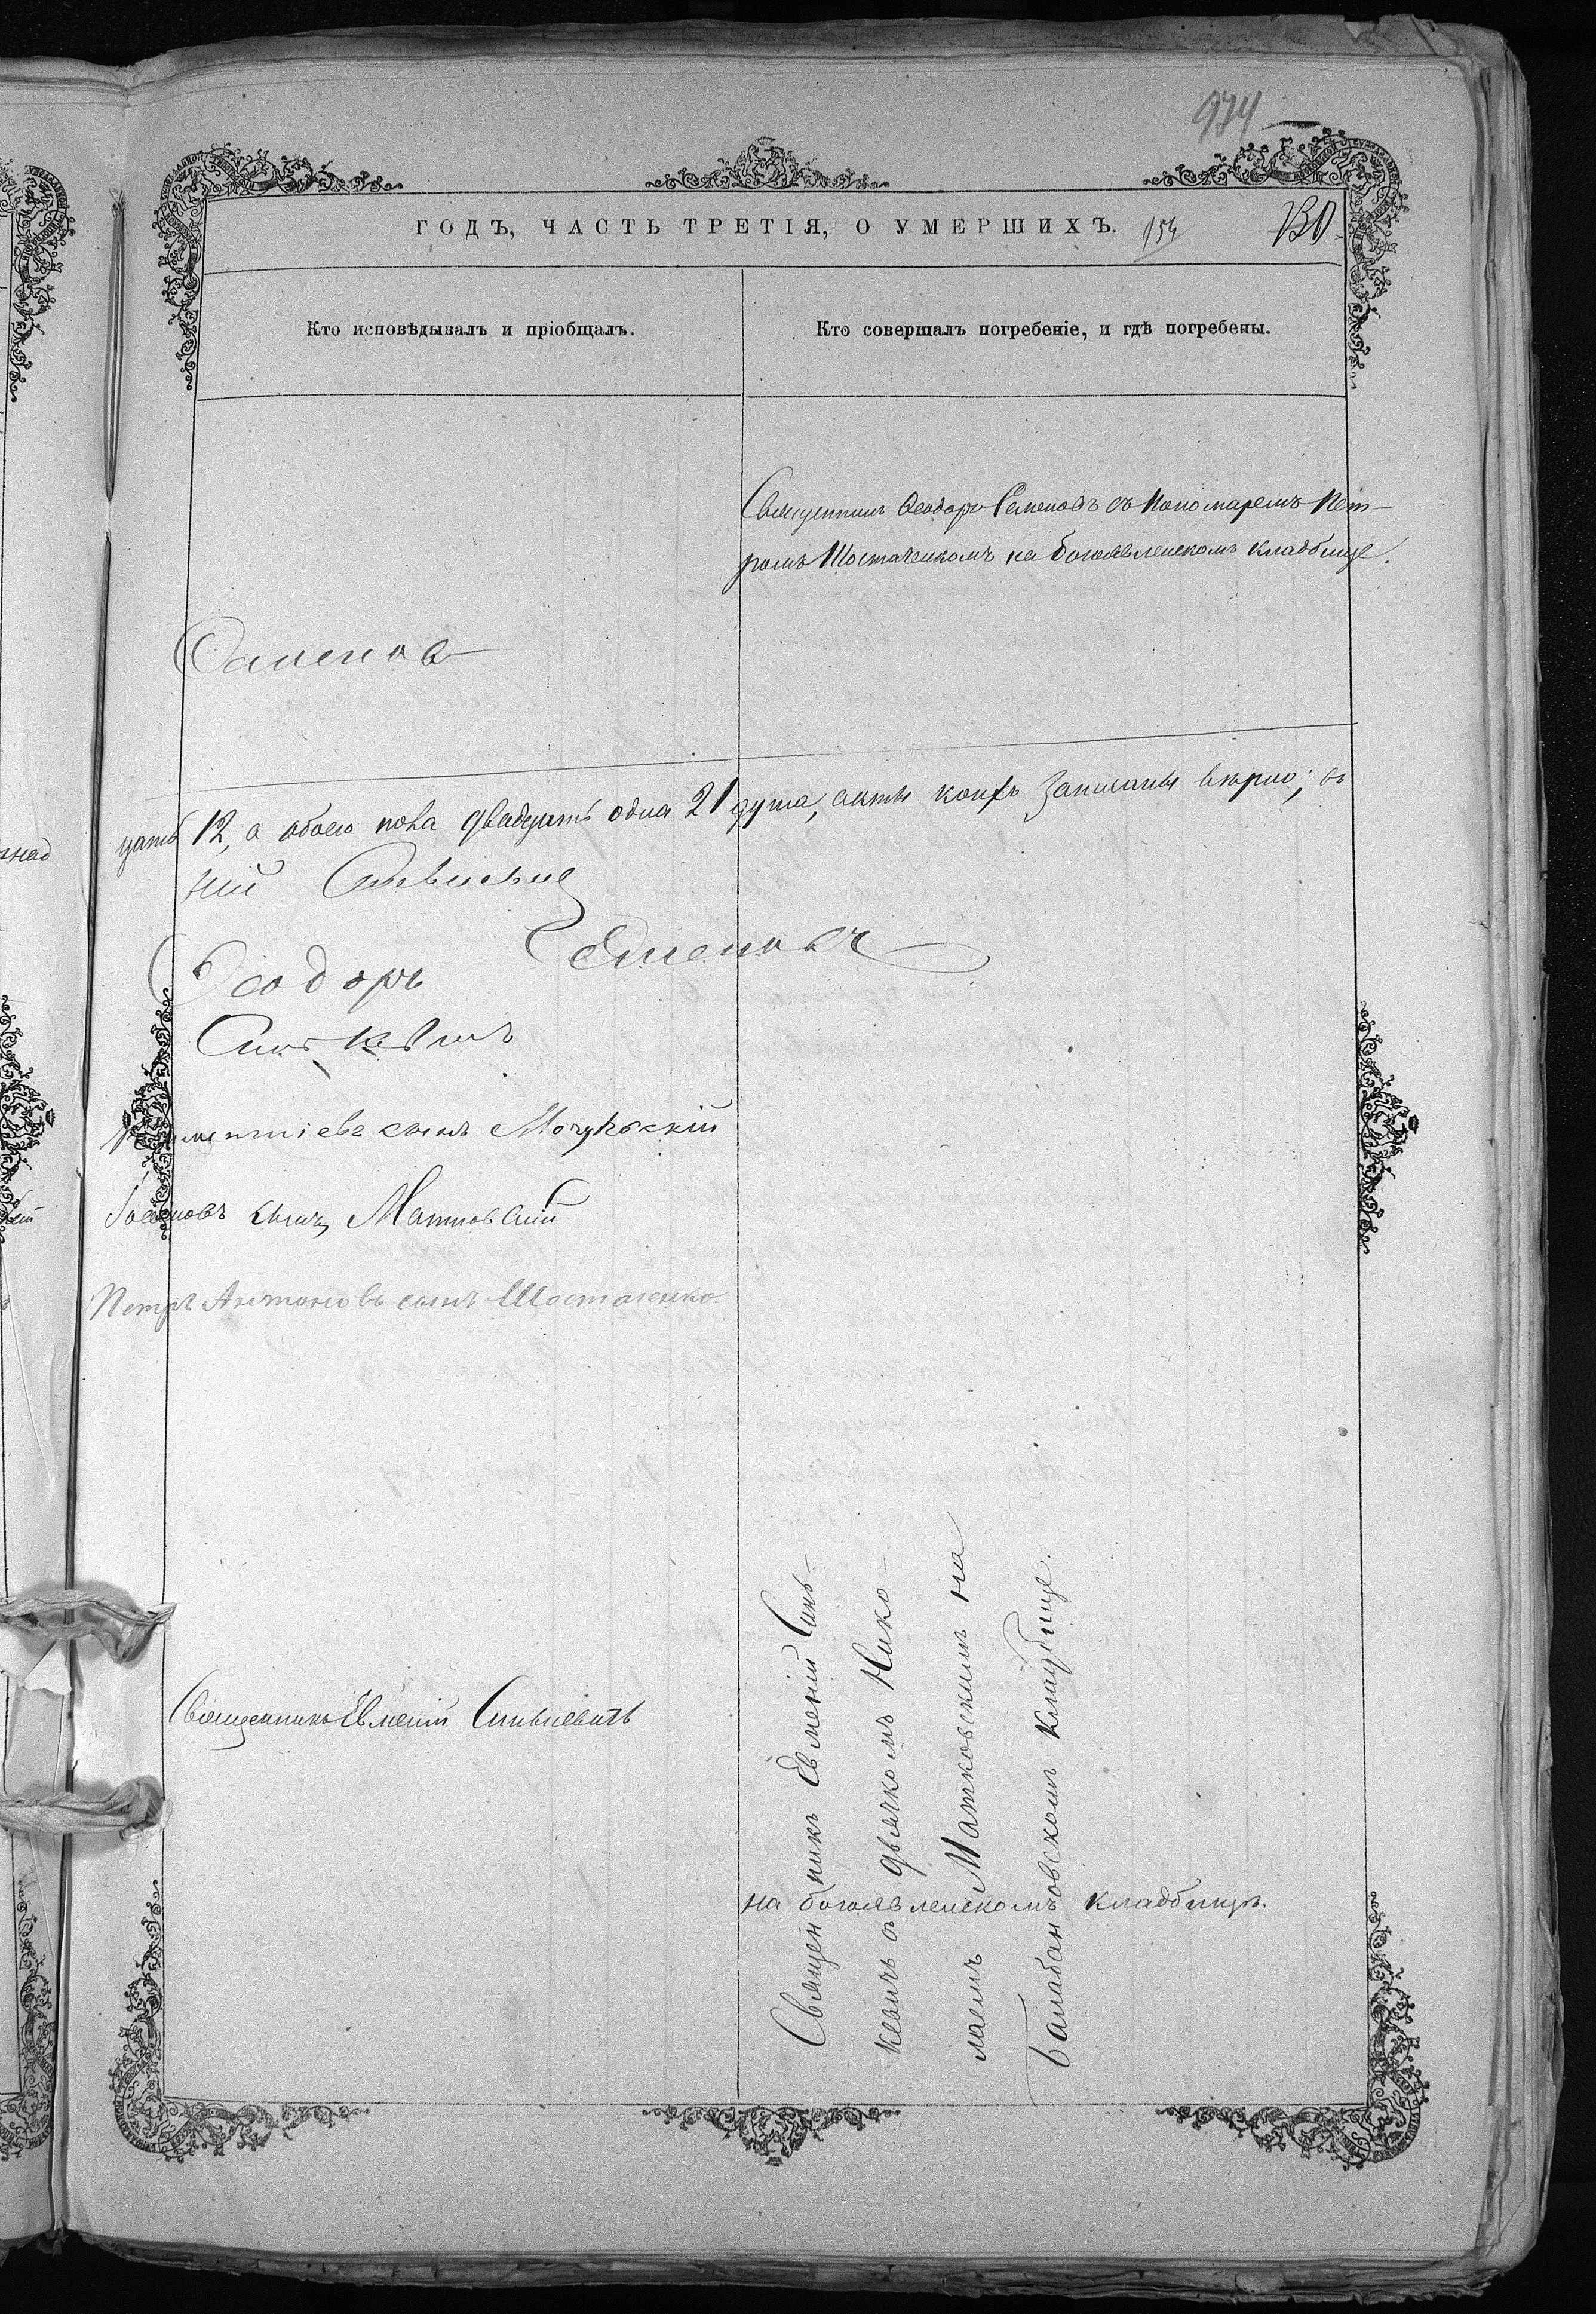 934
ГОДЪ, ЧАСТЬ ТРЕТІЯ, О УМЕРШИХЪ. 154 130
Кто исповѣдывалъ и пріобщалъ.
Кто совершалъ погребеніе, и гдѣ погребены.
Священникъ Ѳеодоръ Семеновъ съ Пономаремъ Пет-
ромъ Шостаченкомъ на богоявленскомъ кладбище.
Семеновъ
цать 12, а обоего пола двадцать одна 21 душа, акты коихъ записаны вѣрно; въ
ній
Ѳеодоръ Семеновъ
сынъ Мочульскій
Іоанновъ сынъ Матковскій
Петръ Антоновъ сынъ Шостаченко
Священникъ Евменій Синькевичъ
Священникъ Евменій Синь-
кевичъ съ дьячкомъ Нико-
лаемъ Матковскимъ на
Балабановскомъ кладбище.
на богоявленскомъ кладбищѣ.